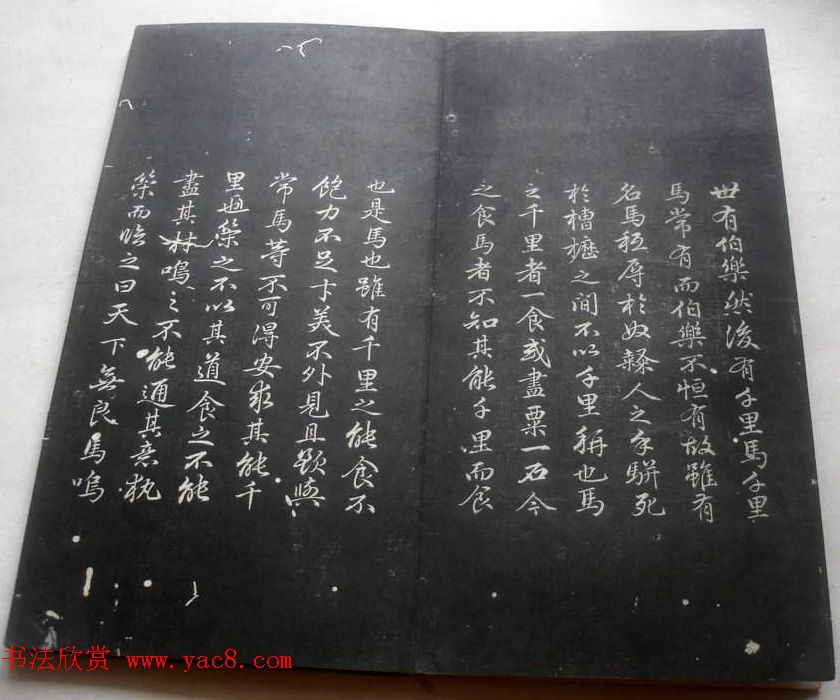 世有伯樂然後有千里馬千里
馬常有而伯樂不恒有故雖有
名馬秖辱於奴隸人之手駢死
於槽櫪之間不以千里稱也馬
之千里者一食或盡粟一石今
之食馬者不知其能千里而食
也是馬也雖有千里之能食不
飽力不足才美不外見且欲與
常馬等不可得安求其能千
里也策之不以其道食之不能
盡其材鳴之不能通其意執
策而臨之曰天下無良馬嗚
书法欣赏 www.yac8.com